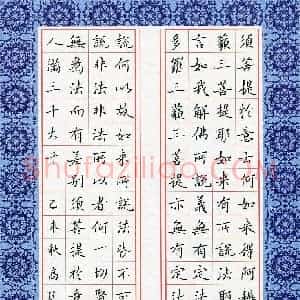 須菩提於意云何如來得阿耨
藐三菩提耶如來有所說法耶
言如我解佛所說義無有定法
多羅三藐三菩提亦無有定法
說何以故如來所說法皆不可
說非法非非法所以者何一切賢
無為法而有差別須菩提
人滿三十
己未秋
Shufaziliao.COM